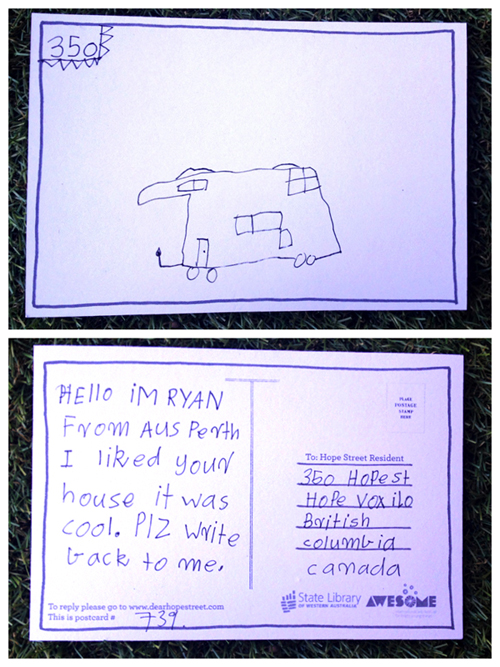 350
HEllo iM RYAN
From Aus Perth
I liked your
house it was
cool. Plz write
back to me.
To reply please go to www.dearhopestreet.com
This is postcard # 739.
PLACE
POSTAGE
STAMP
HERE
To: Hope Street Resident
350 Hopest
Hope Vox1Lo
British
columbia
canada
State Library
OF WESTERN AUSTRALIA
AWESOME